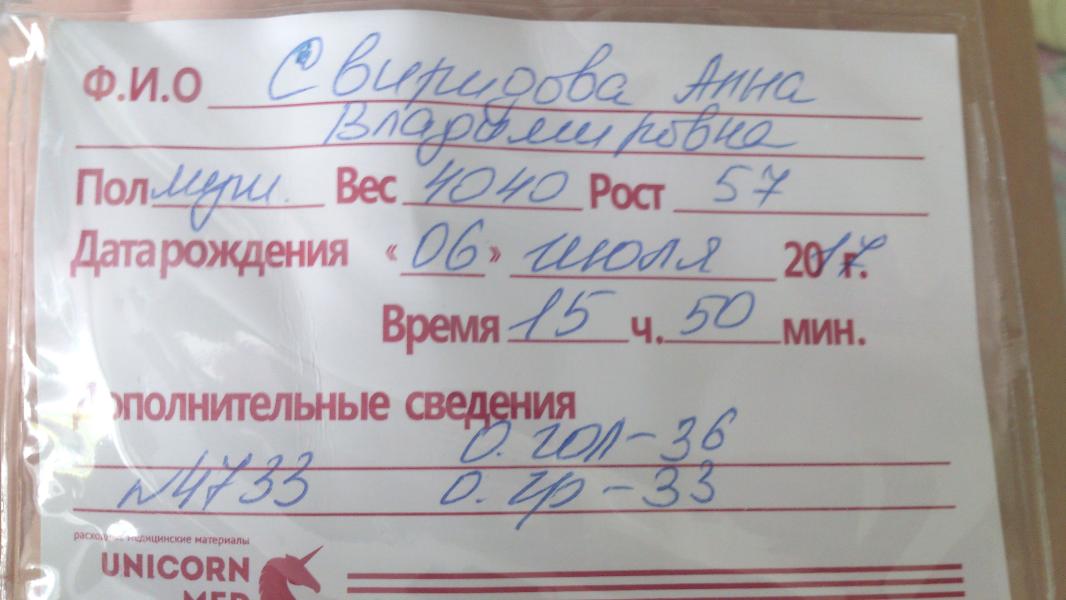 Ф.И.О Свиридова Анна
Владимировна
Пол муж. Вес 4040 Рост 57
Дата рождения «06» июля 2017 г.
Время 15 ч. 50 мин.
Дополнительные сведения
О. гол - 36
№4733 О. гр - 33
расходные медицинские материалы
UNICORN
MED